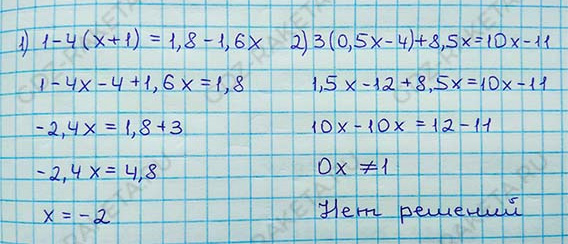 1) 1-4(x+1) = 1,8-1,6x
1-4x-4+1,6x=1,8
-2,4x = 1,8+3
-2,4x = 4,8
x = -2
2) 3(0,5x-4)+8,5x=10x-11
1,5x-12+8,5x=10x-11
10x-10x=12-11
0x ≠1
Нет решений